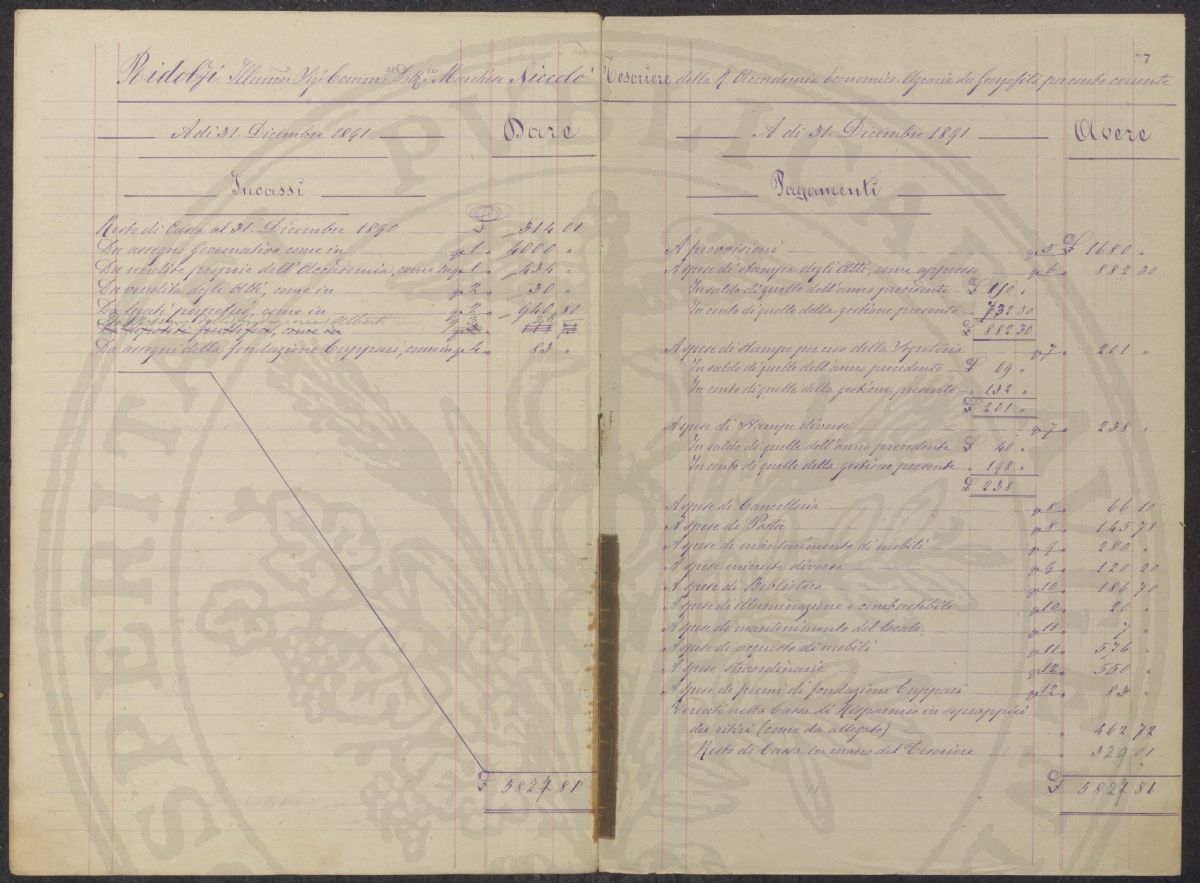 37
Ridolfi Illumo Sigr Comme Dre Marchese Niccolò Tesoriere della R. Accademia Economico-Agraria dei Georgofili per conto corrente
A dì 31. Dicembre 1891 Dare
Incassi
Resto di Cassa al 31. Dicembre 1890 £ 314 01
Da assegno Governativo come in 1 4000 "
Da rendite proprie dell'Accademia, come in 1 434 "
Da vendita degli Atti, come in 2 30 "
Da legati perpetui, come in 960 80
Alberti
come in
Da assegni della fondazione Cuppari, come in 83 "
£ 5827 81
A dì 31. Dicembre 1891 Avere
Pagamenti
A provvisioni 5 £ 1680 "
A spese di stampa degli Atti, come appresso 6 882 30
In saldo di quelle dell'anno precedente £ 150 "
In conto di quelle della gestione presente " 732 30
£ 882 30
A spese di stampe per uso della Segreteria 7 201 "
In saldo di quelle dell'anno precedente £ 69 "
In conto di quelle della gestione presente " 132 "
£ 201 "
A spese di Stampe diverse 7 238 "
In saldo di quelle dell'anno precedente £ 40 "
In conto di quelle della gestione presente " 198 "
£ 238
A spese di Cancelleria 8 66 10
A spese di Posta 8 145 78
A spese di mantenimento di mobili 9 280 "
A spese minute diverse 9 120 20
A spese di Biblioteca 10 186 70
A spese di illuminazione e combustibile 10 20 "
A spese di mantenimento del locale 11 7 "
A spese di acquisto di mobili 11 576 "
A spese straordinarie 12 550 "
A spese di premi di fondazione Cuppari 12 83 "
Versati nella Cassa di Risparmio in
dei ritiri (come da allegato) 462 72
Resto di Cassa in mano del Tesoriere 329 01
£ 5827 81
PROSPERITATI PUBLICAE AUGENDAE